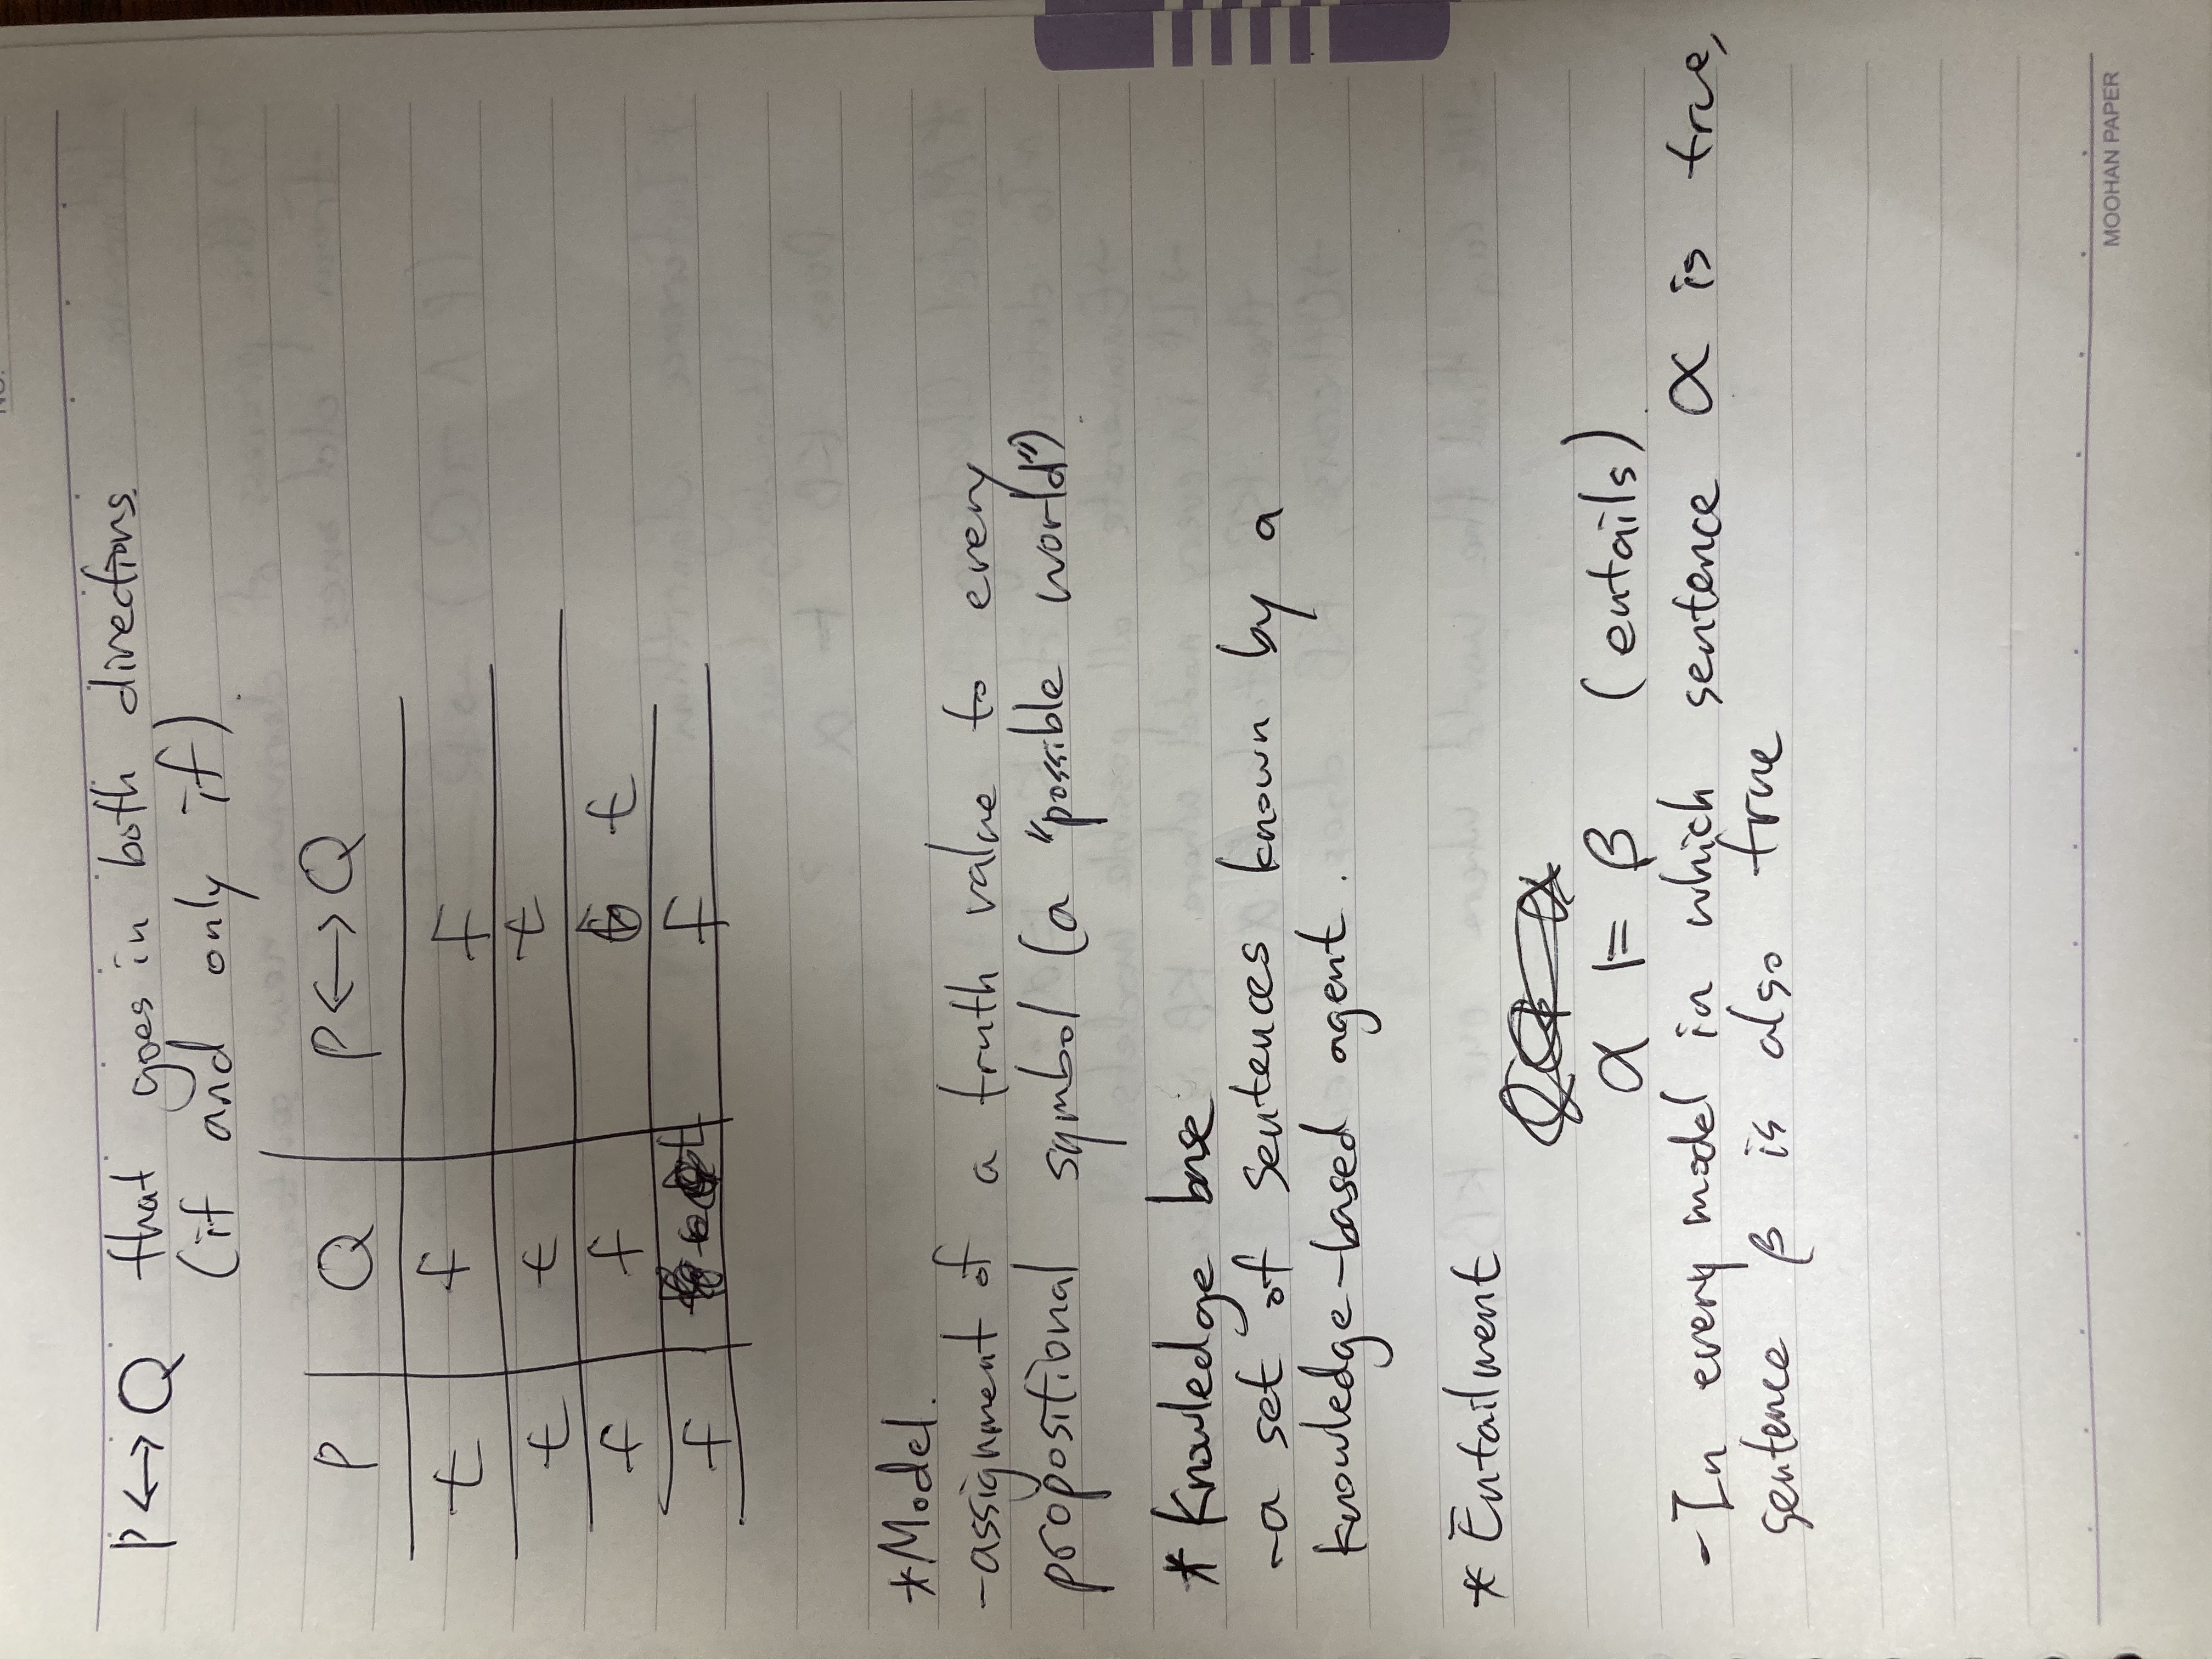 NO.
P ↔ Q that goes in both directions.
(if and only if).
P Q P ↔ Q
t f F
t t t
f f t
f t F
*Model.
-assignment of a truth value to every
propositional symbol (a "possible world").
* Knowledge base
-a set of sentences known by a
knowledge-based agent.
* Entailment
α ⊨ β (entails).
-In every model in which sentence α is true,
sentence β is also true
MOOHAN PAPER